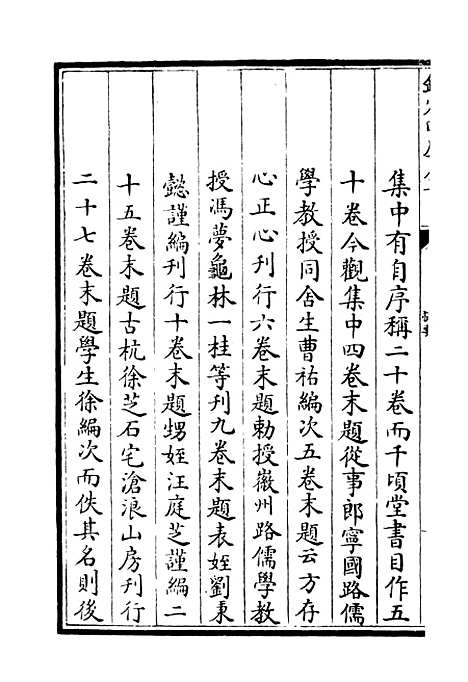 集中有自序稱二十卷而千頃堂書目作五
十卷今觀集中四卷末題從事郎寧國路儒
學教授同舍生曹祐編次五卷末題云方存
心正心刊行六卷末題勅授徽州路儒學教
授馮夢龜林一桂等刊九卷末題表姪劉秉
懿謹編刊行十卷末題甥姪汪庭芝謹編二
十五卷末題古杭徐芝石宅滄浪山房刊行
二十七卷末題學生徐編次而佚其名則後